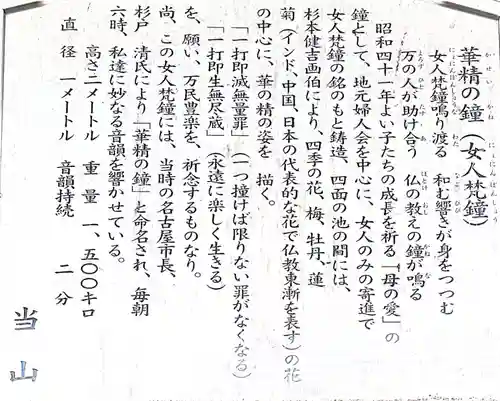 華精の鐘(女人梵鐘)
女人梵鐘鳴り渡る 和む響きが身をつつむ
万の人が助け合う 仏の教えの鐘が鳴る
昭和四十一年よい子たちの成長を祈る「母の愛」の
鐘として、地元婦人会を中心に、女人のみの寄進で
女人梵鐘の銘のもと鋳造、四面の池の間には、
杉本健吉画伯により、四季の花、梅、牡丹、蓮
菊(インド、中国、日本の代表的な花で仏教東漸を表す)の花
の中心に、華の精の姿を 描く。
「一打即滅無量罪」(一つ撞けば限りない罪がなくなる)
「一打即生無尽蔵」(永遠に楽しく生きる)
を、願い、万民豊楽を、祈念するものなり。
尚、この女人梵鐘には、当時の名古屋市長、
杉戸 清氏により「華精の鐘」と命名され、毎朝
六時、私達に妙なる音韻を響かせている。
高さ二メートル 重量 一、五〇〇キロ
直径 一メートル 音韻持続 二分
当山